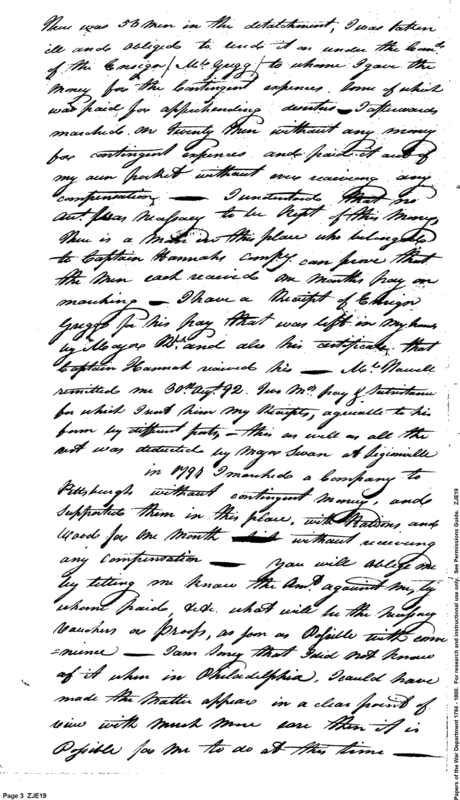 There was 53 men in the detatchment, I was taken
ill and obliged to send it on under the Comd.
of the Ensign (Mr. Gregg) to whome I gave the
Money for the Contingent expences. some of which
was paid for apprehending deserters — I afterwards
marched on Twenty Men without any money
for contingent expences and paid it out of
my own pocket without ever receiving any
compensation — I understood that no
Act. was necessary to be kept of this Money
There is a Man in this place who belonged
to Captain Hannahs Compy. can prove that
the Men each received one Months pay on
marching — I have a Receipt of Ensign
Greggs for his pay that was left in my hands
by Mayor and also his certificate, that
Captain Hannah received his — Mr. Howell
remitted me 30th Augt. 92. Two Mos. pay & Subsistance
for which I sent him my Receipts, agreeable to his
form by different posts — this as well as all the
rest was deducted by Major Swan at Legionville
in 1794 I marched a Company to
Pittsburgh without contingent money, and
supported them in this place, with Rations and
Wood for one Month without receiving
any compensation — You will oblige me
by letting me know the Amt. against me, by
whome paid, &c. what will be the necessary
Vouchers or Proofs, as soon as Possible with conve
=nience — I am Sorry that I did not know
of it when in Philadelphia, I could have
made the Matter appear in a clear point of
view with much more ease then it is
Possible for me to do at this time —
Page 3 ZJE19
Papers of the War Department 1784 - 1800. For research and instructional use only. See Permissions Guide. ZJE19